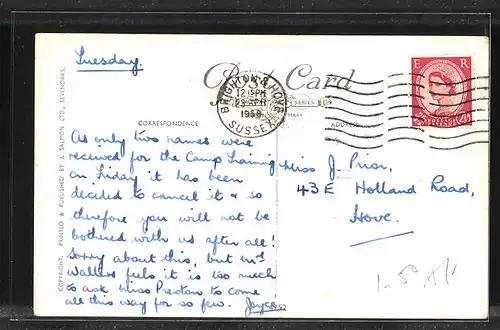 Tuesday.
Post Card
BRIGHTON & HOVE
12 15 PM
SUSSEX
E R
CORRESPONDENCE
ADDRESS
As only two names were
received for the Camp Training
on Friday it has been
decided to cancel it & so
therefore you will not be
bothered with us after all!
Sorry about this, but Mrs
Walters feels it is too much
to ask Miss Preston to come
all this way for so few. Joyce
Miss J. Prior,
43E Holland Road,
Hove.
COPYRIGHT. PRINTED & PUBLISHED BY J. SALMON LTD., SEVENOAKS.